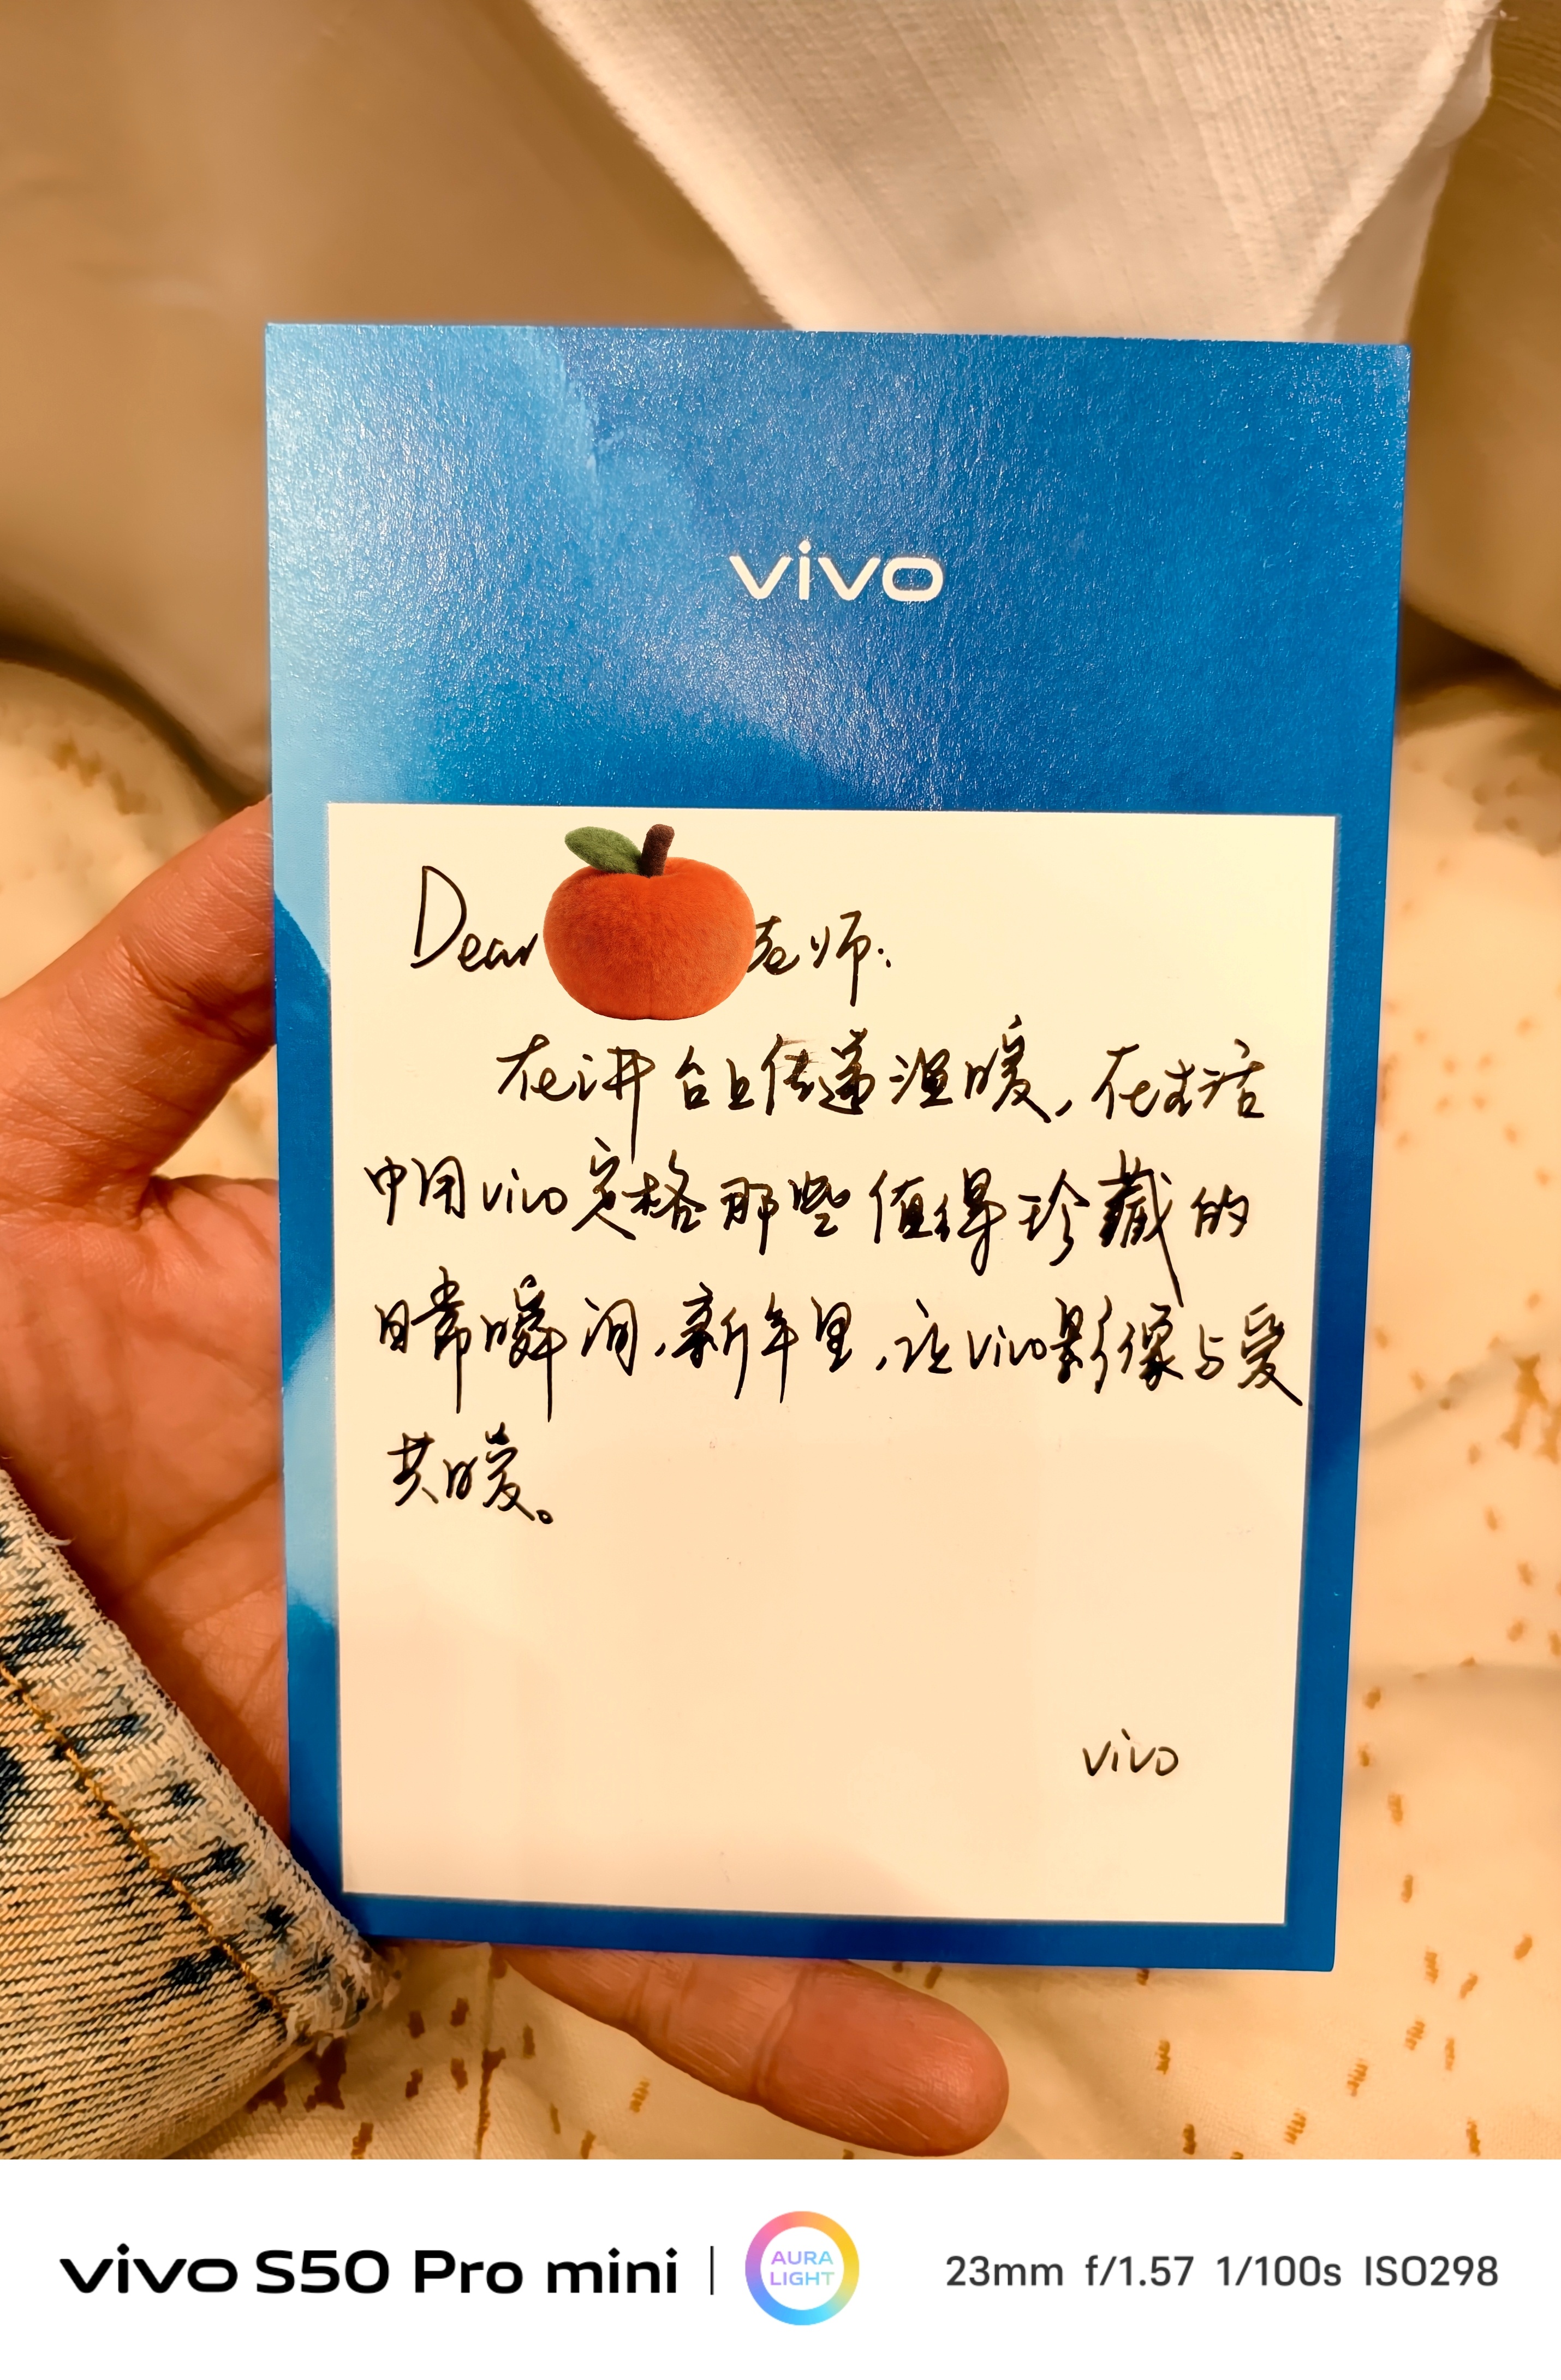 vivo
Dear 老师:
在讲台上传递温暖,在生活
中用vivo定格那些值得珍藏的
日常瞬间,新年里,让vivo影像与爱
共暖。
vivo
vivo S50 Pro mini | AURA LIGHT 23mm f/1.57 1/100s ISO298